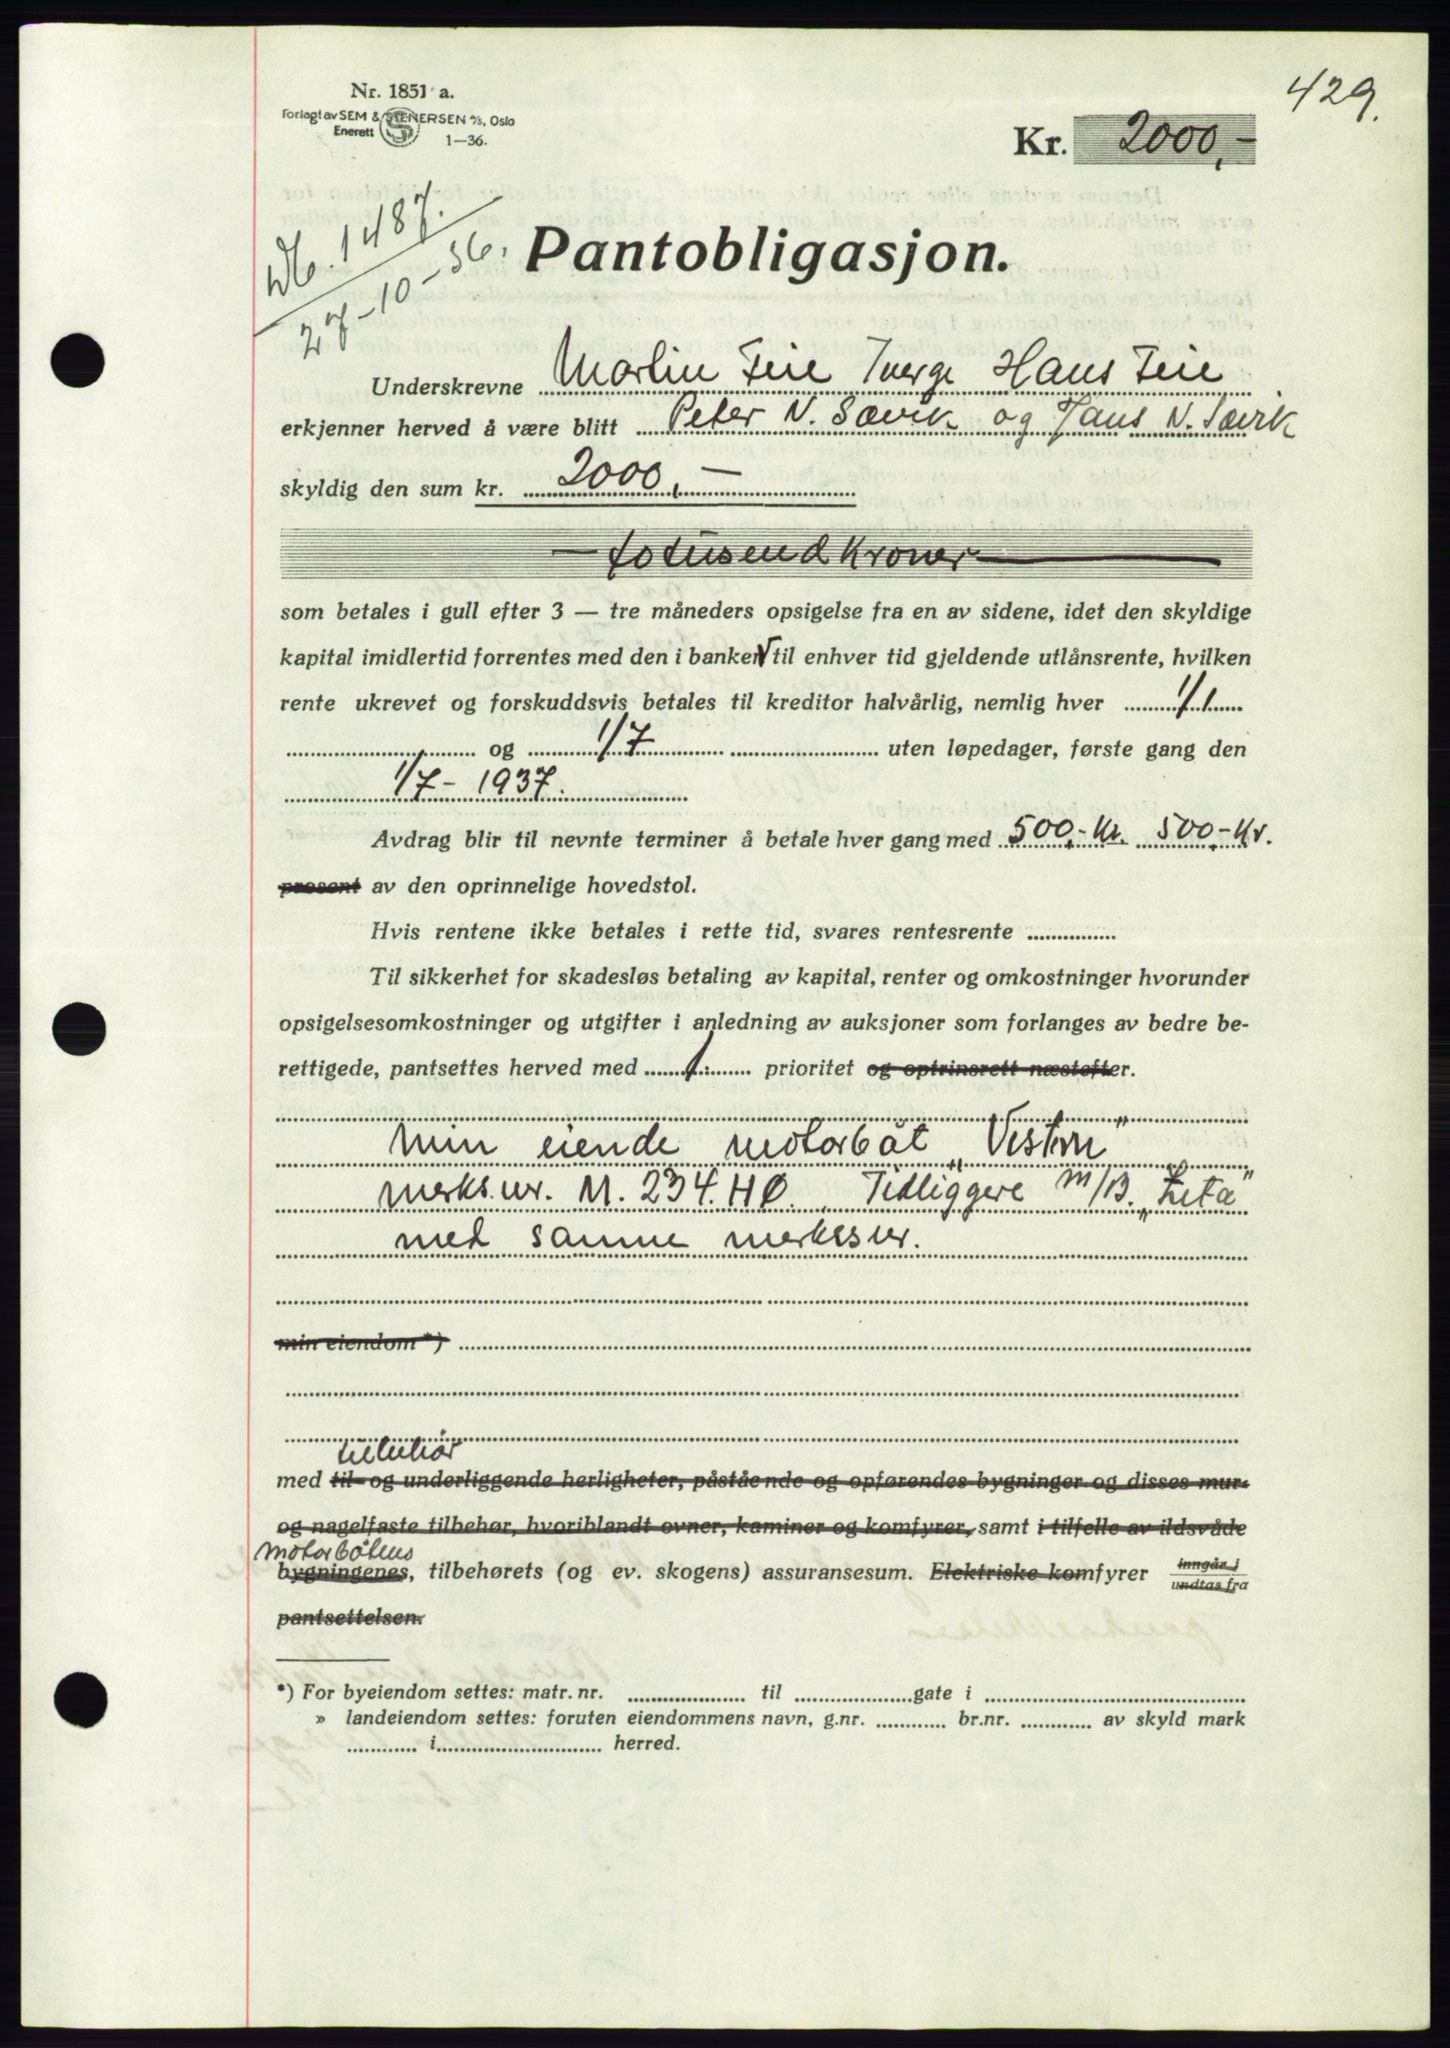 429.
Nr. 1851 a.
Forlagt av SEM & STENERSEN A/S, Oslo
Enerett
1—36.
Kr. 2000,-
Db. 1487.
27-10-36.
Pantobligasjon.
Underskrevne Martin Teie Tverge Hans Teie
erkjenner herved å være blitt Peter N. Sævik og Hans N. Sævik
skyldig den sum kr. 2000,—
— totusend kroner —
som betales i gull efter 3 — tre måneders opsigelse fra en av sidene, idet den skyldige
kapital imidlertid forrentes med den i banker til enhver tid gjeldende utlånsrente, hvilken
rente ukrevet og forskuddsvis betales til kreditor halvårlig, nemlig hver 1/1
og 1/7 uten løpedager, første gang den
1/7 - 1937.
Avdrag blir til nevnte terminer å betale hver gang med 500,- Kr. 500,- Kr.
prosent av den oprinnelige hovedstol.
Hvis rentene ikke betales i rette tid, svares rentesrente
Til sikkerhet for skadesløs betaling av kapital, renter og omkostninger hvorunder
opsigelsesomkostninger og utgifter i anledning av auksjoner som forlanges av bedre be-
rettigede, pantsettes herved med 1. prioritet og optrinsrett næstefter.
min eiende motorbåt
merks.nr. M. 234. HØ. Tidligere M/B. „Zeta"
med samme merkesnr.
min eiendom *)
tilbehör
med til- og underliggende herligheter, påstående og opførendes bygninger og disses mur-
og nagelfaste tilbehør, hvoriblandt ovner, kaminer og komfyrer, samt i tilfelle av ildsvåde
motorbåtens
bygningenes, tilbehørets (og ev. skogens) assuransesum. Elektriske komfyrer inngår i
undtas fra
pantsettelsen.
*) For byeiendom settes: matr. nr. til gate i
» landeiendom settes: foruten eiendommens navn, g.nr. br.nr. av skyld mark
i herred.